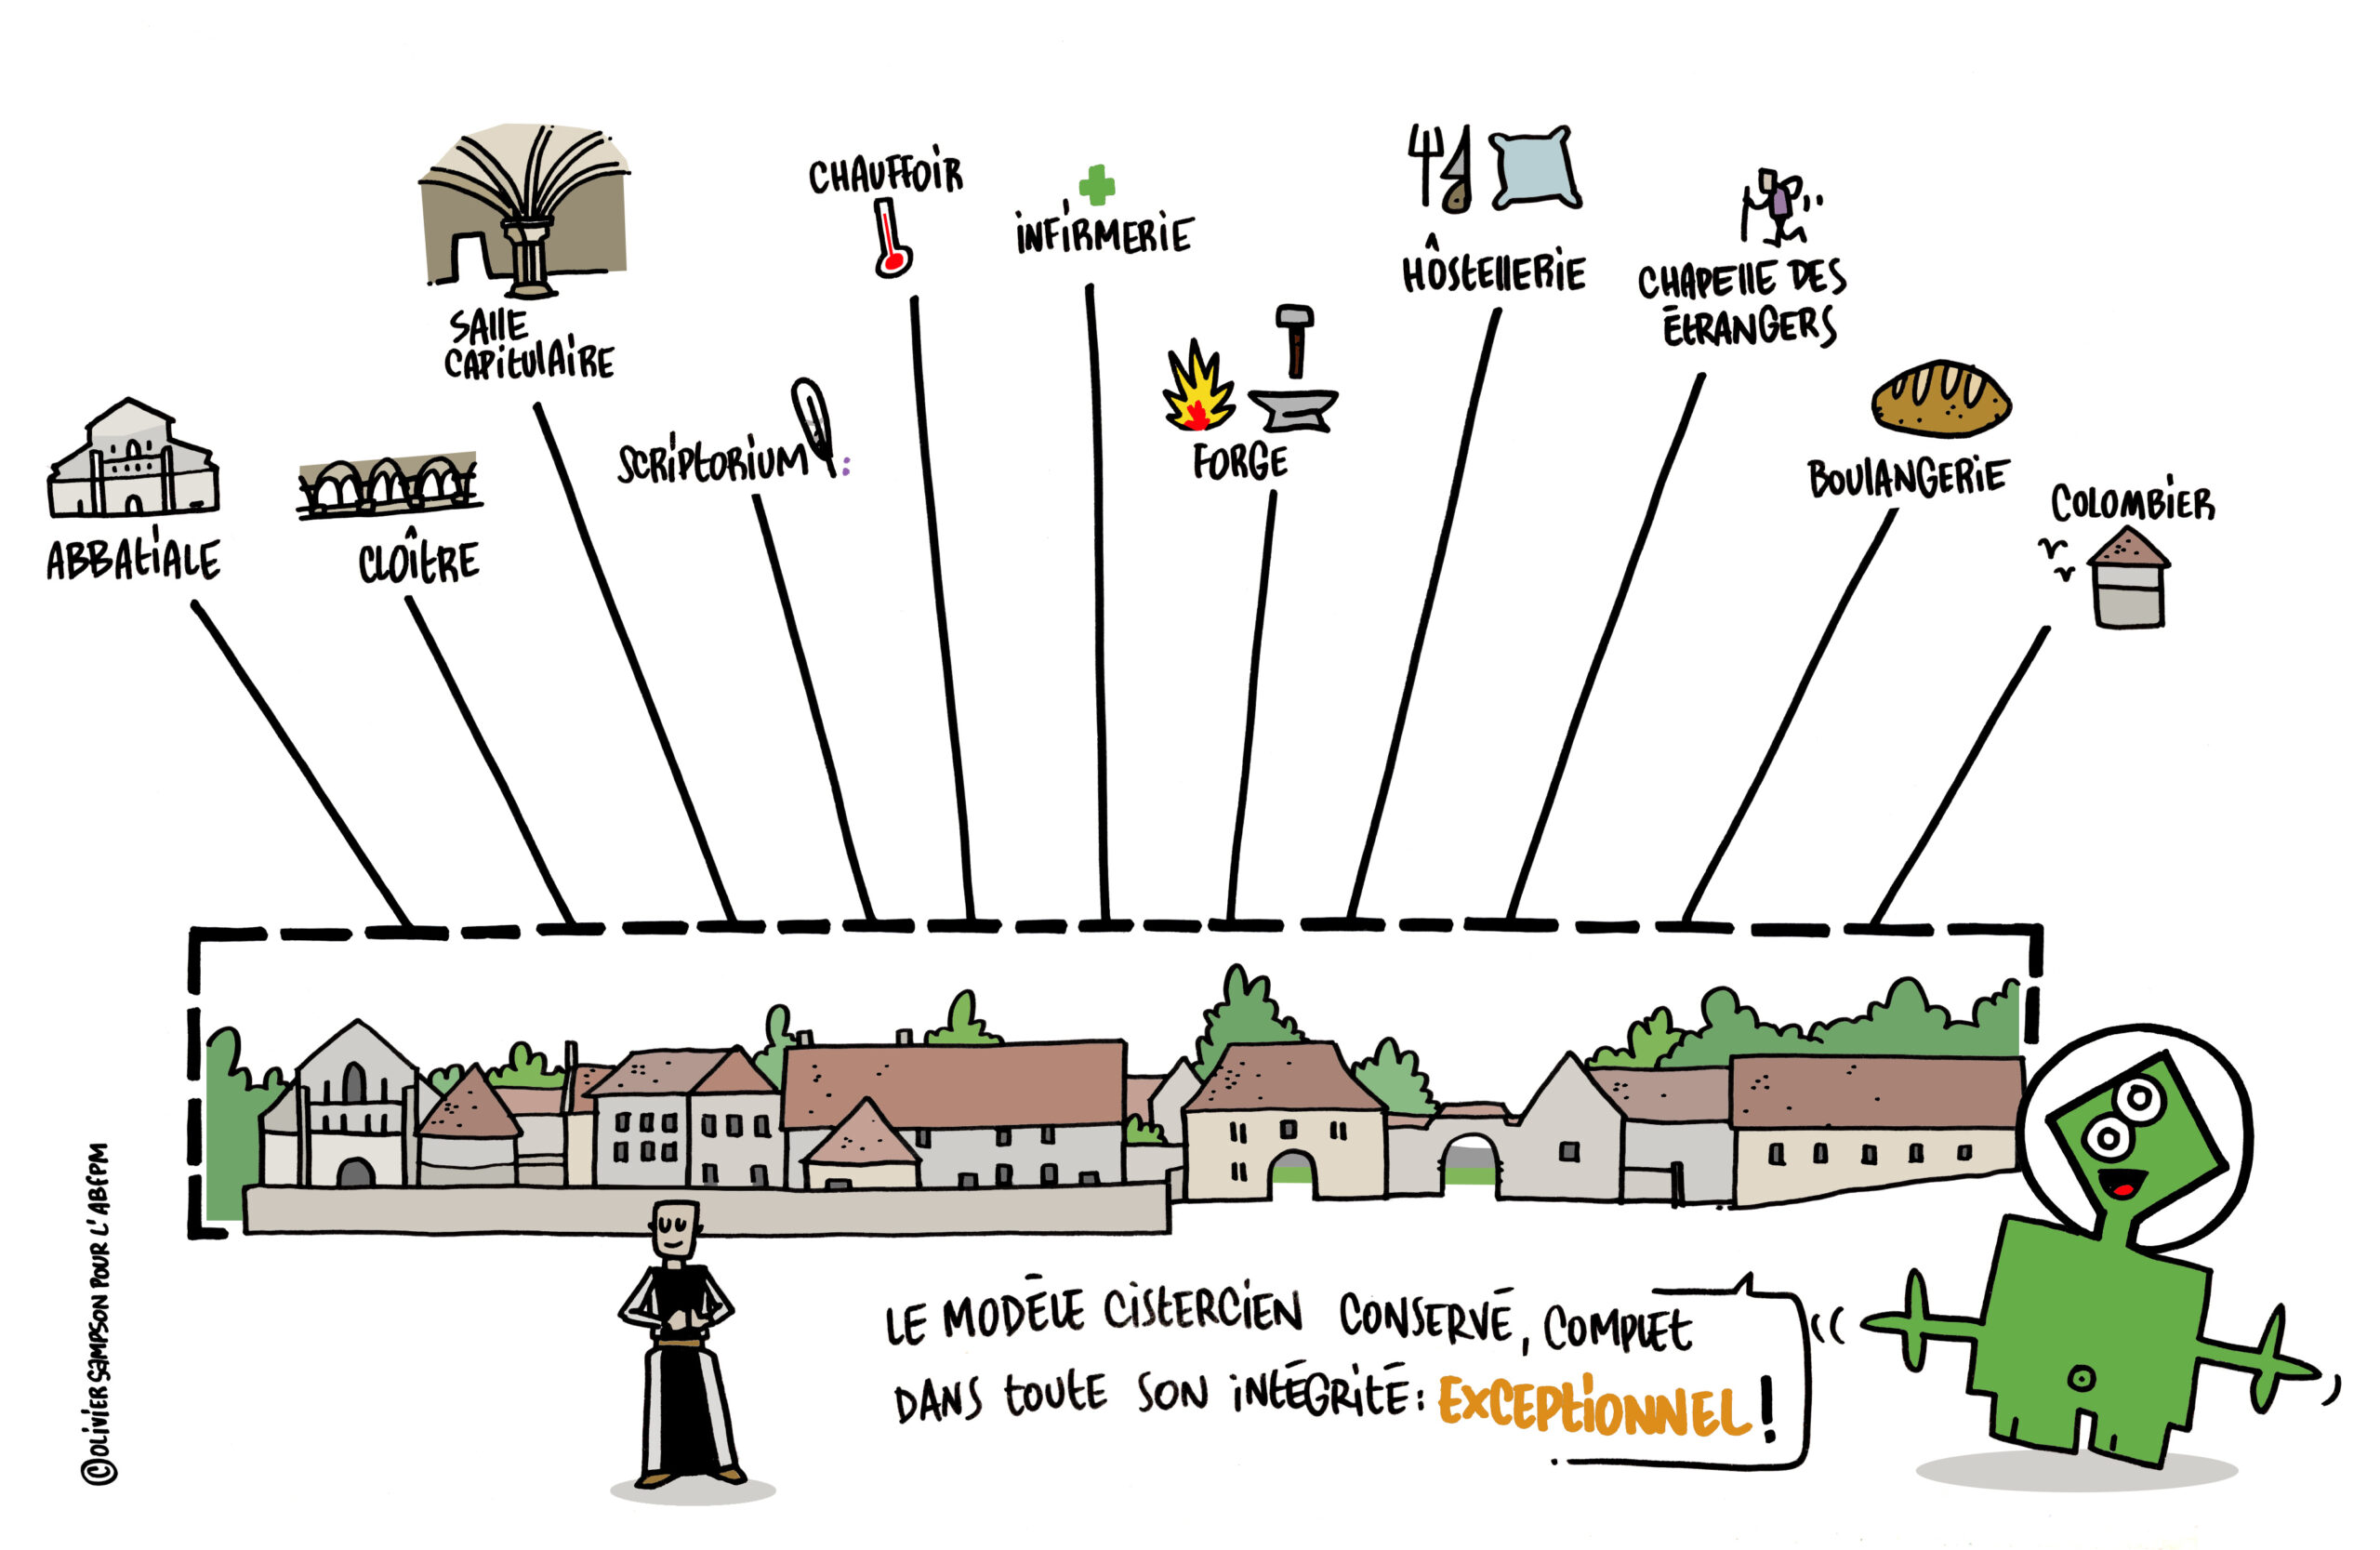 CHAUFFOIR
INFIRMERIE
HÔSTELLERIE
CHAPELLE DES
ÉTRANGERS
SALLE
CAPITULAIRE
SCRIPTORIUM
FORGE
BOULANGERIE
COLOMBIER
ABBATIALE
CLOÎTRE
LE MODÈLE CISTERCIEN CONSERVÉ, COMPLET
DANS TOUTE SON INTÉGRITÉ: EXCEPTIONNEL!
©OLIVIER SAMPSON POUR L'ABFPM